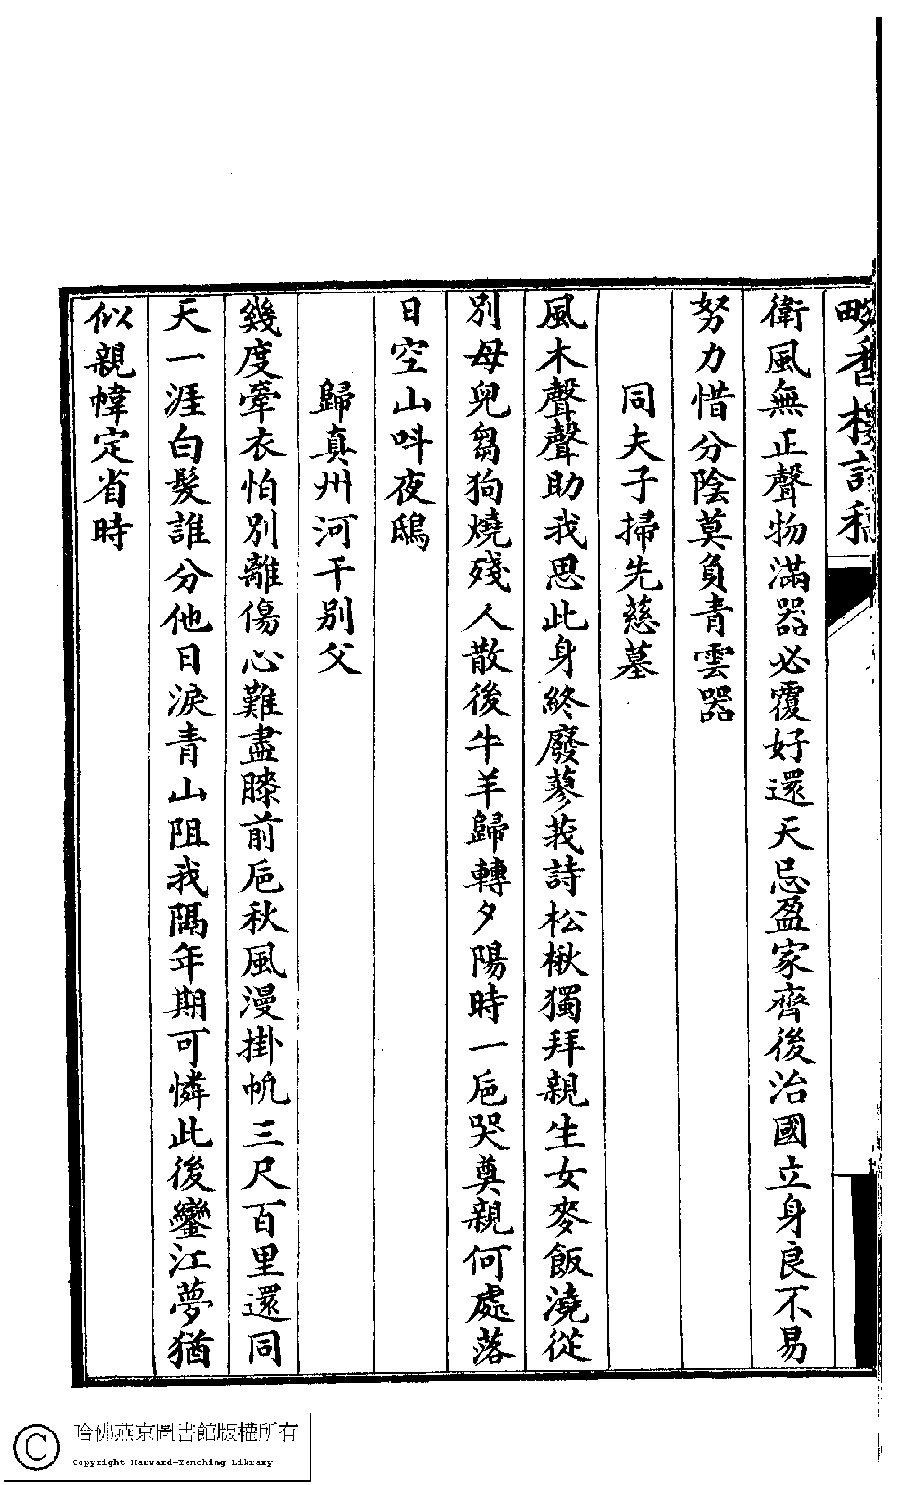 衛風無正聲物滿器必覆好還天忌盈家齊後治國立身良不易
努力惜分陰莫負青雲器
同夫子掃先慈墓
風木聲聲助我思此身終廢蓼莪詩松楸獨拜親生女麥飯澆從
別母兒芻狗燒殘人散後牛羊歸轉夕陽時一卮哭奠親何處落
日空山呌夜鴟
歸真州河干別父
幾度牽衣怕別離傷心難盡膝前卮秋風漫掛帆三尺百里還同
天一涯白髮誰分他日淚青山阻我隔年期可憐此後鑾江夢猶
似親幃定省時
哈佛燕京圖書館版權所有
Copyright Harvard-Yenching Library